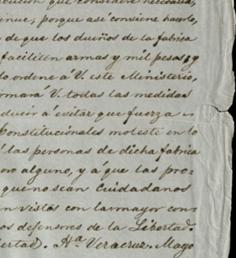 nue; porque así conviene hacerlo,
de que los dueños de la fabica
faciliten armas y mil pesos; y
lo ordene á V. este Ministerio,
tomará V. todas las medidas
ducir á evitar que fuerza
Constitucionales moleste en lo
á las personas de dicha fabrica
ro alguno, y á que las pro
que no sean Ciudadanos
n vistas con la mayor con
os defensores de la Libertad.
ertad. Hª Veracruz. Mayo